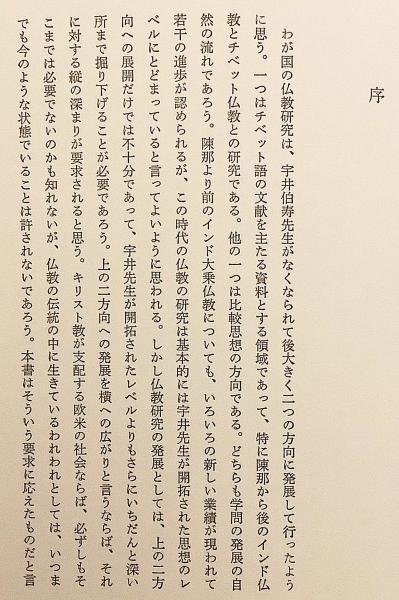 序
わが国の仏教研究は、宇井伯寿先生がなくなられて後大きく二つの方向に発展して行ったよう
に思う。一つはチベット語の文献を主たる資料とする領域であって、特に陳那から後のインド仏
教とチベット仏教との研究である。他の一つは比較思想の方向である。どちらも学問の発展の自
然の流れであろう。陳那より前のインド大乗仏教についても、いろいろの新しい業績が現われて
若干の進歩が認められるが、この時代の仏教の研究は基本的には宇井先生が開拓された思想のレ
ベルにとどまっていると言ってよいように思われる。しかし仏教研究の発展としては、上の二方
向への展開だけでは不十分であって、宇井先生が開拓されたレベルよりもさらにいちだんと深い
所まで掘り下げることが必要であろう。上の二方向への発展を横への広がりと言うならば、それ
に対する縦の深まりが要求されると思う。キリスト教が支配する欧米の社会ならば、必ずしもそ
こまでは必要でないのかも知れないが、仏教の伝統の中に生きているわれわれとしては、いつま
でも今のような状態でいることは許されないであろう。本書はそういう要求に応えたものだと言